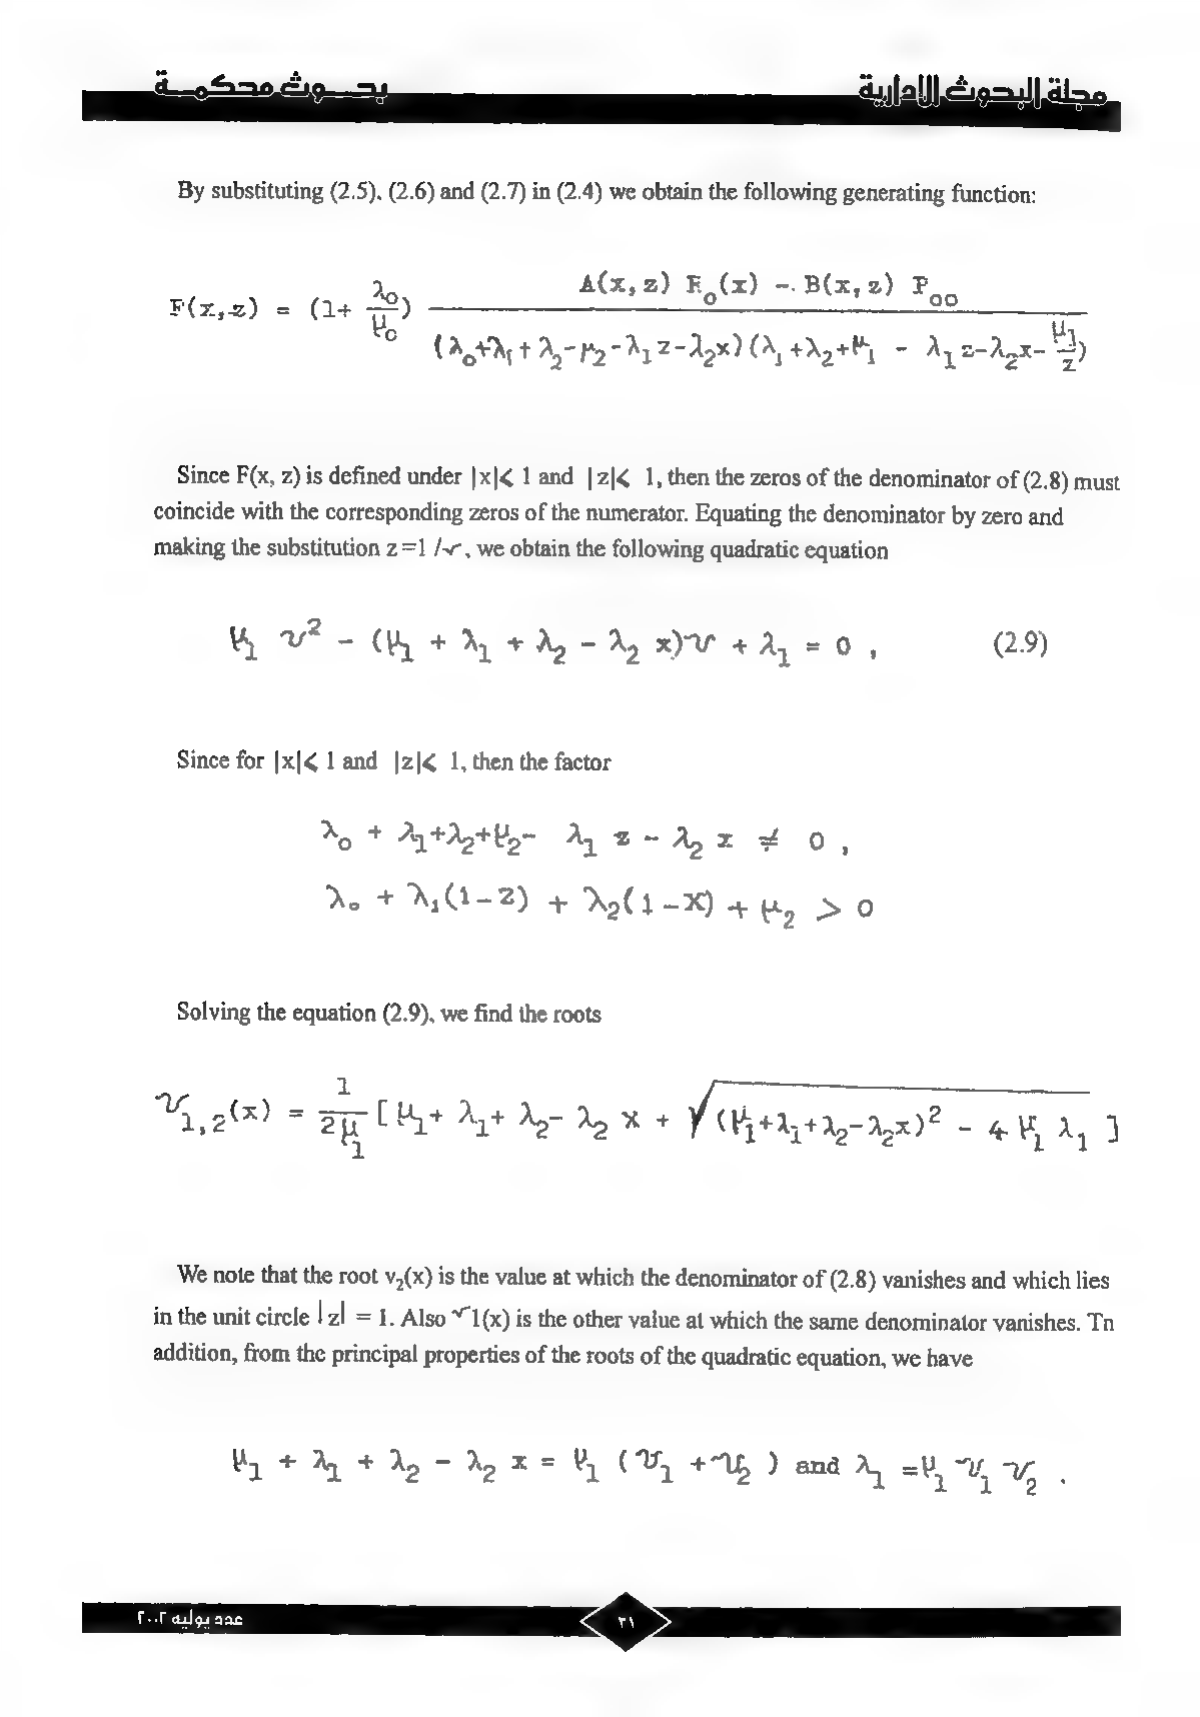 بحـــوث محكمـــة
مجلة البحوث الإدارية
By substituting (2.5), (2.6) and (2.7) in (2.4) we obtain the following generating function:
F(x,z) = (1+ λ₀/μ₀) (A(x, z) R₀(x) - B(x, z) P₀₀) / ((λ₀+λ₁+λ₂-μ₂-λ₁z-λ₂x)(λ₁+λ₂+μ₁ - λ₁z-λ₂x- μ₁/z))
Since F(x, z) is defined under |x|⩽ 1 and |z|⩽ 1, then the zeros of the denominator of (2.8) must
coincide with the corresponding zeros of the numerator. Equating the denominator by zero and
making the substitution z =1 /v, we obtain the following quadratic equation
μ₁ v² - (μ₁ + λ₁ + λ₂ - λ₂ x)v + λ₁ = 0 , (2.9)
Since for |x|⩽ 1 and |z|⩽ 1, then the factor
λ₀ + λ₁+λ₂+μ₂- λ₁ z - λ₂ x ≠ 0 ,
λ₀ + λ₁(1-z) + λ₂(1-x) + μ₂ > 0
Solving the equation (2.9), we find the roots
v₁,₂(x) = 1/(2μ₁) [ μ₁+ λ₁+ λ₂- λ₂ x + √((μ₁+λ₁+λ₂-λ₂x)² - 4 μ₁ λ₁) ]
We note that the root v₂(x) is the value at which the denominator of (2.8) vanishes and which lies
in the unit circle |z| = 1. Also v1(x) is the other value at which the same denominator vanishes. Tn
addition, from the principal properties of the roots of the quadratic equation, we have
μ₁ + λ₁ + λ₂ - λ₂ x = μ₁ ( v₁ + v₂ ) and λ₁ = μ₁ v₁ v₂ .
عدد يوليه ٢٠٠٢
٣١